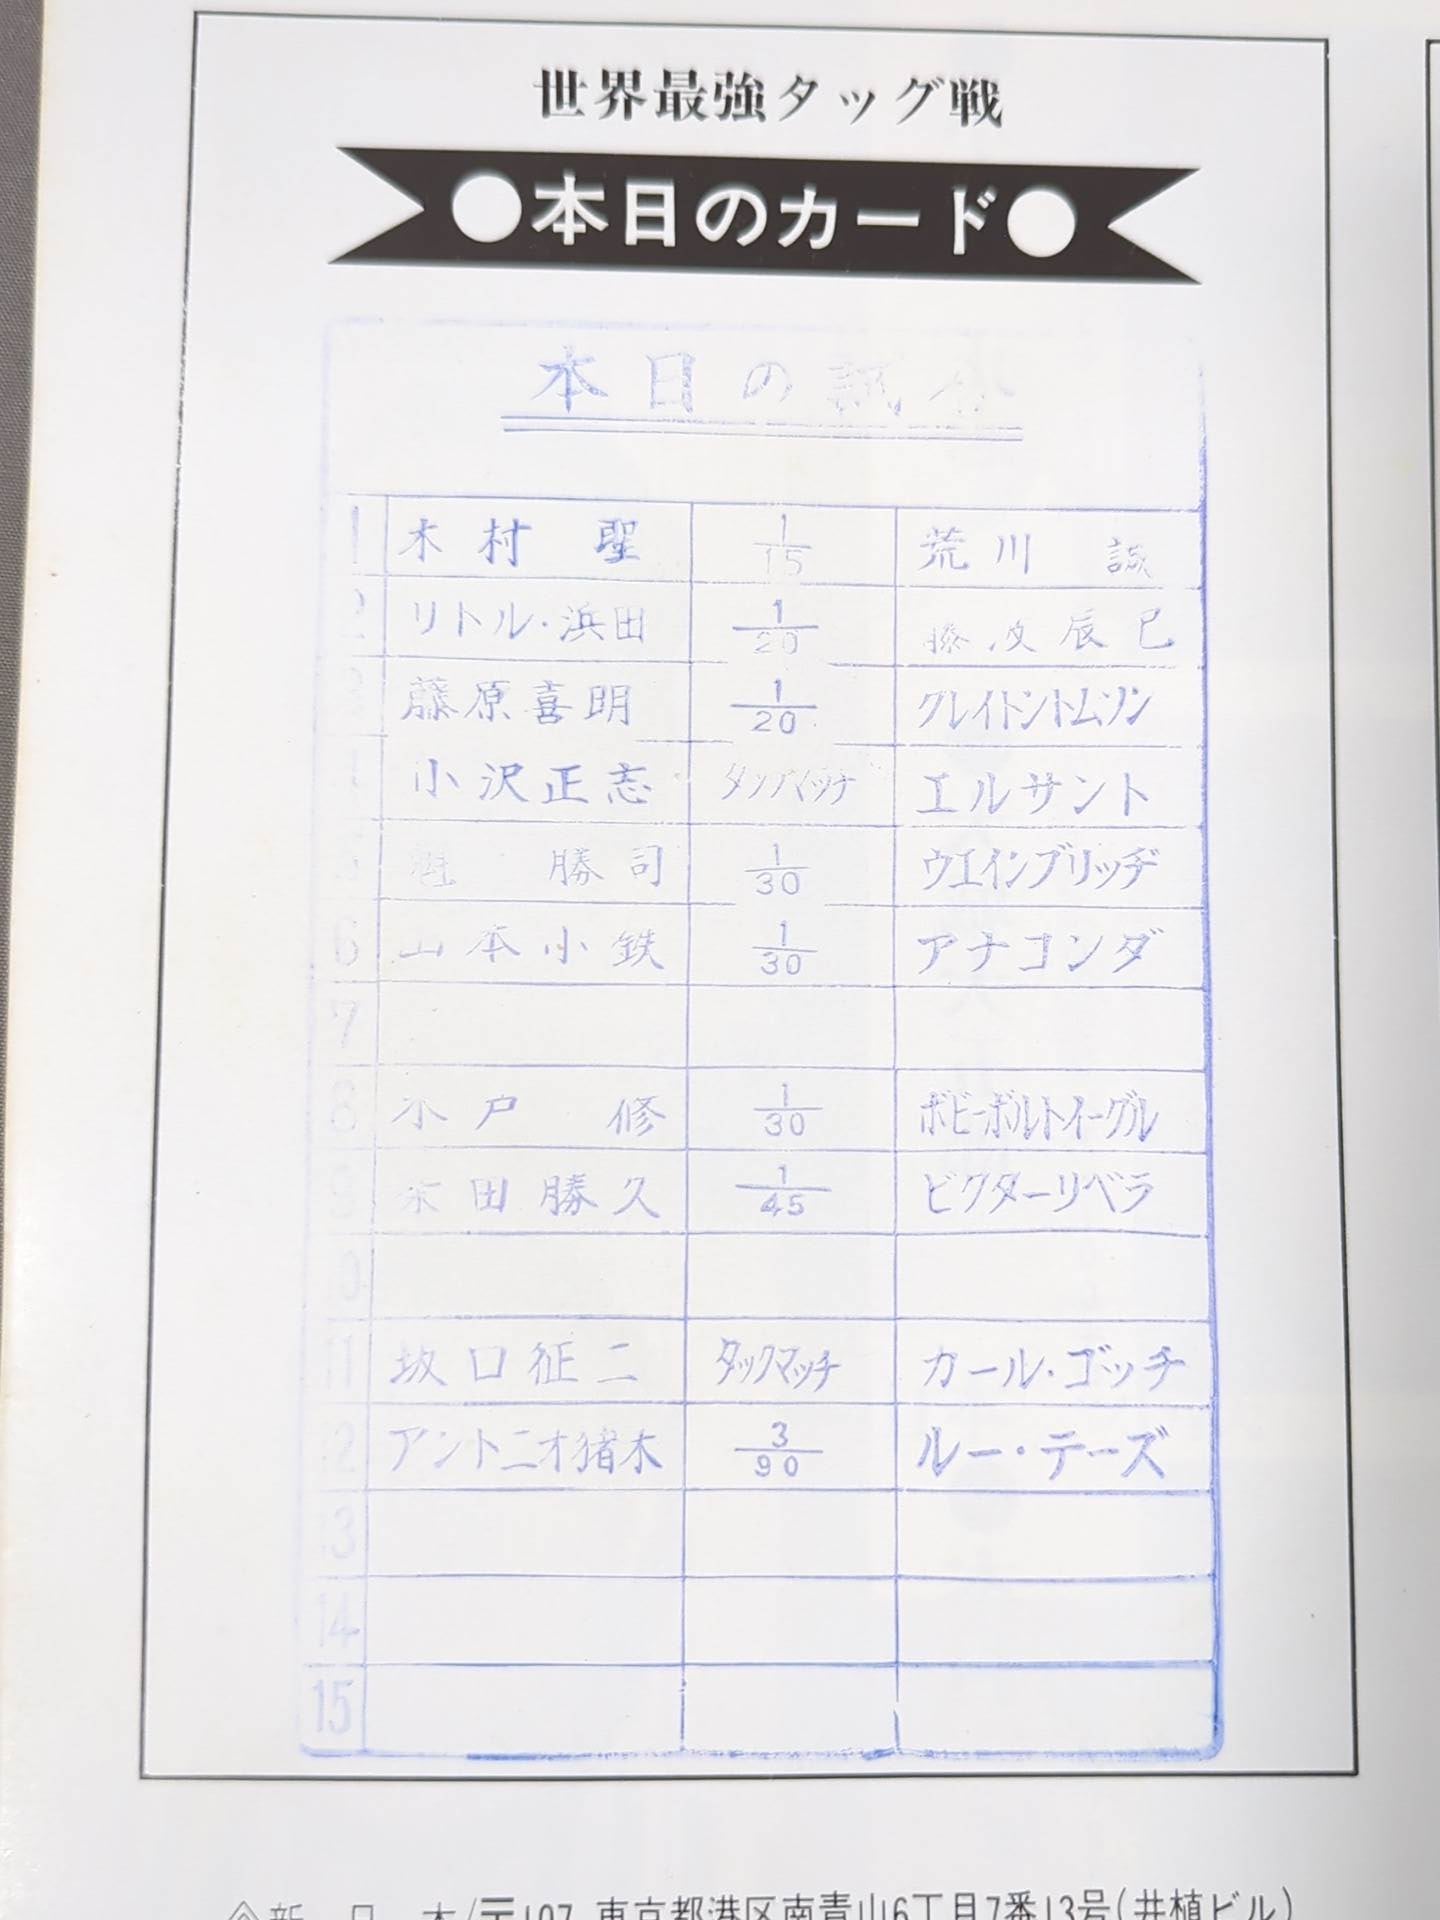 世界最強タッグ戦
●本日のカード●
本日の試合
1 木村 聖 1/15 荒川 誠
2 リトル・浜田 1/20 藤波辰巳
3 藤原喜明 1/20 クレイトントムソン
4 小沢正志 タッグマッチ エルサント
5 魁 勝司 1/30 ウエインブリッヂ
6 山本小鉄 1/30 アナコンダ
7
8 木戸 修 1/30 ボビーボルトイーグル
9 永田勝久 1/45 ビクターリベラ
10
11 坂口征二 タックマッチ カール・ゴッチ
12 アントニオ猪木 3/90 ルー・テーズ
13
14
15
新日本/〒107 東京都港区南青山6丁目7番13号(井植ビル)